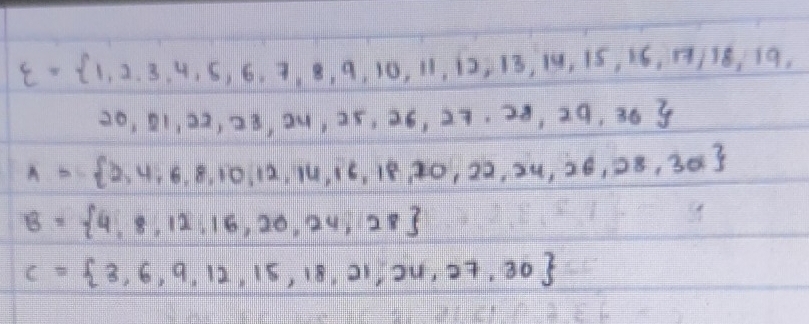 ε = {1, 2, 3, 4, 5, 6, 7, 8, 9, 10, 11, 12, 13, 14, 15, 16, 17, 18, 19,
20, 21, 22, 23, 24, 25, 26, 27, 28, 29, 30}
A = {2, 4, 6, 8, 10, 12, 14, 16, 18, 20, 22, 24, 26, 28, 30}
B = {4, 8, 12, 16, 20, 24, 28}
C = {3, 6, 9, 12, 15, 18, 21, 24, 27, 30}